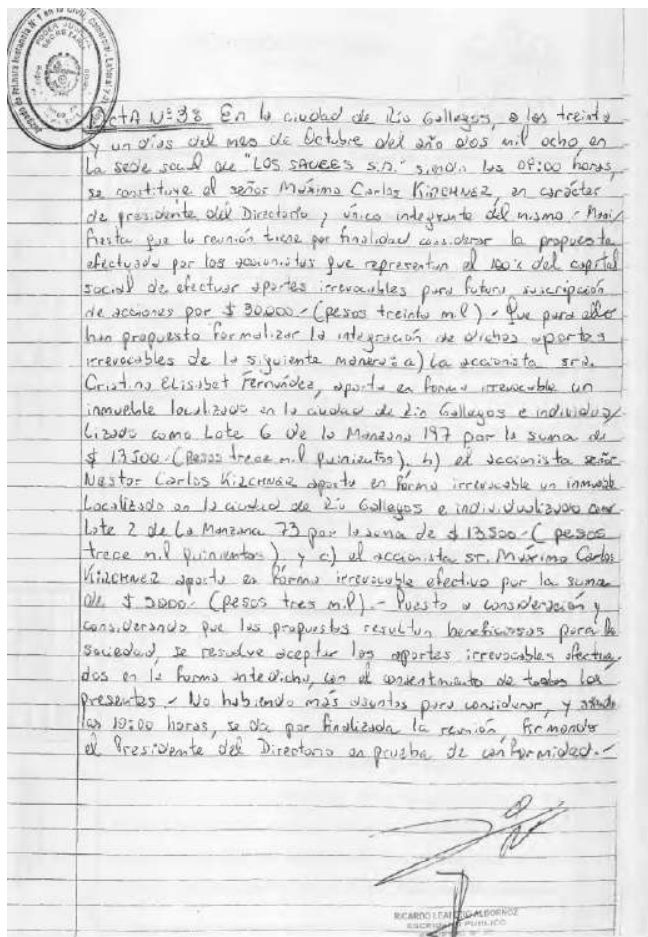 Juzgado de Primera Instancia N° 1 en lo Civil, Comercial, Laboral y de
PODER JUDICIAL
SECRETARIA
ACTA N° 38 En la ciudad de Río Gallegos, a los treinta
y un días del mes de Octubre del año dos mil ocho, en
la sede social de "LOS SAUCES S.A." siendo las 09:00 horas,
se constituye el señor Máximo Carlos KIRCHNER, en carácter
de presidente del Directorio y único integrante del mismo.- Mani/
fiesta que la reunión tiene por finalidad considerar la propuesta
efectuada por los accionistas que representan el 100% del capital
social de efectuar aportes irrevocables para futura suscripción
de acciones por $ 30.000.- (pesos treinta mil).- Que para ello
han propuesto formalizar la integración de dichos aportes
irrevocables de la siguiente manera: a) La accionista sra.
Cristina Elisabet Fernández, aporta en forma irrevocable un
inmueble localizado en la ciudad de Río Gallegos e individua/
lizado como Lote 6 de la Manzana 197 por la suma de
$ 13500.- (pesos trece mil quinientos), b) el accionista señor
Nestor Carlos KIRCHNER aporta en forma irrevocable un inmueble
localizado en la ciudad de Río Gallegos e individualizado como
Lote 2 de la Manzana 73 por la suma de $ 13500.- ( pesos
trece mil quinientos ) y c) el accionista sr. Máximo Carlos
KIRCHNER aporta en forma irrevocable efectivo por la suma
de $ 3000.- (pesos tres mil).- Puesto a consideración y
considerando que las propuestas resultan beneficiosas para la
sociedad, se resuelve aceptar los aportes irrevocables efectua/
dos en la forma antedicha, con el consentimiento de todos los
presentes.- No habiendo más asuntos para considerar, y siendo
las 10:00 horas, se da por finalizada la reunión, firmando
el Presidente del Directorio en prueba de conformidad.-
RICARDO LEANDRO ALBORNOZ
ESCRIBANO PUBLICO